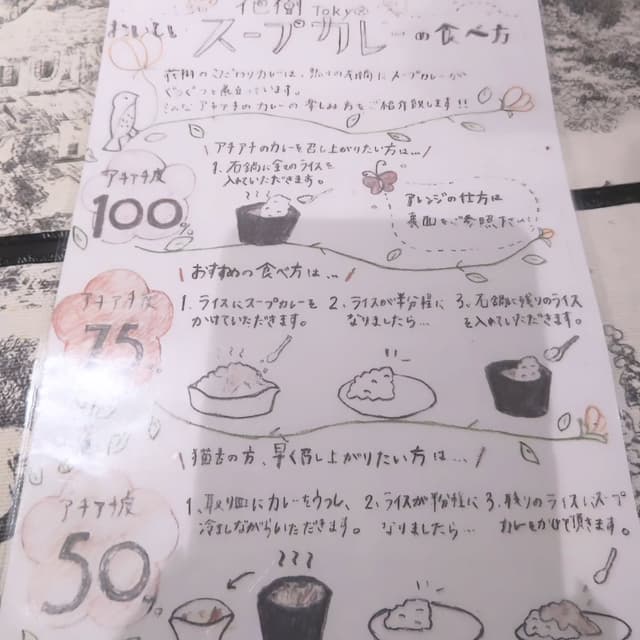 Tokyo
おいしい スープカレーの食べ方
ぐつぐつと
こんなアチアチのカレーの楽しみ方をご紹介致します!!
\ アチアチのカレーを召し上がりたい方は.../
アチアチ度
100%
1. 石鍋に全てのライスを
入れていただきます。
アレンジの仕方は
裏面をご参照下さい
\ おすすめの食べ方は... /
アチアチ度
75
1. ライスにスープカレーを
かけていただきます。
2. ライスが半分程に
なりましたら...
3. 石鍋に残りのライス
を入れていただきます。
\ 猫舌の方、早く召し上がりたい方は... /
アチアチ度
50%
1. 取り皿にカレーをうつし、
冷ましながらいただきます。
2. ライスが半分程に
なりましたら...
3. 残りのライスにスープ
カレーをかけて頂きます。